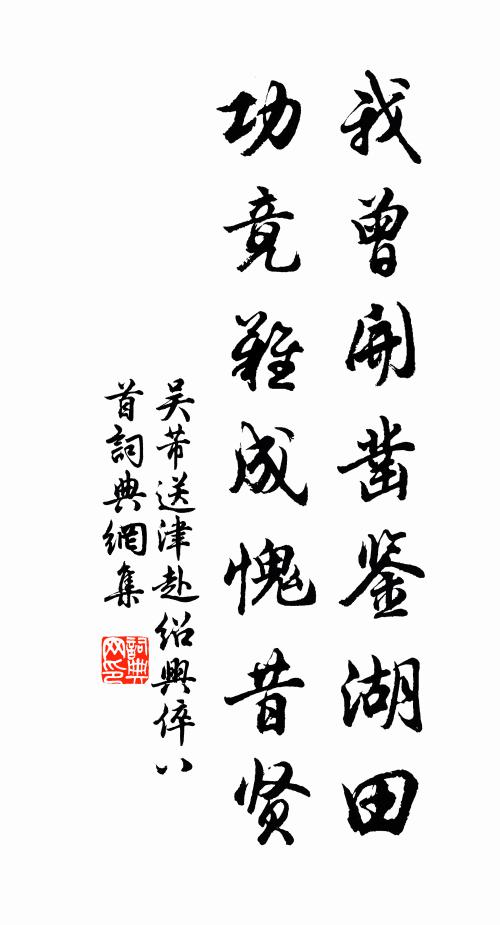 我曾開凿鉴湖田
功竟難成愧昔贤
吴芾送津赴绍興倅八
首詞典網集
詞典
网印